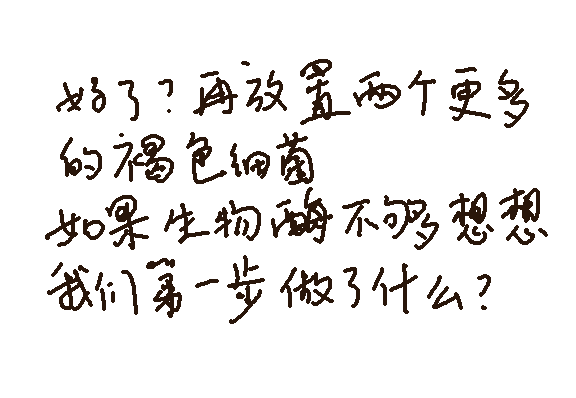 好了?再放置两个更多
的褐色细菌
如果生物酶不够多想想
我们第一步做了什么?